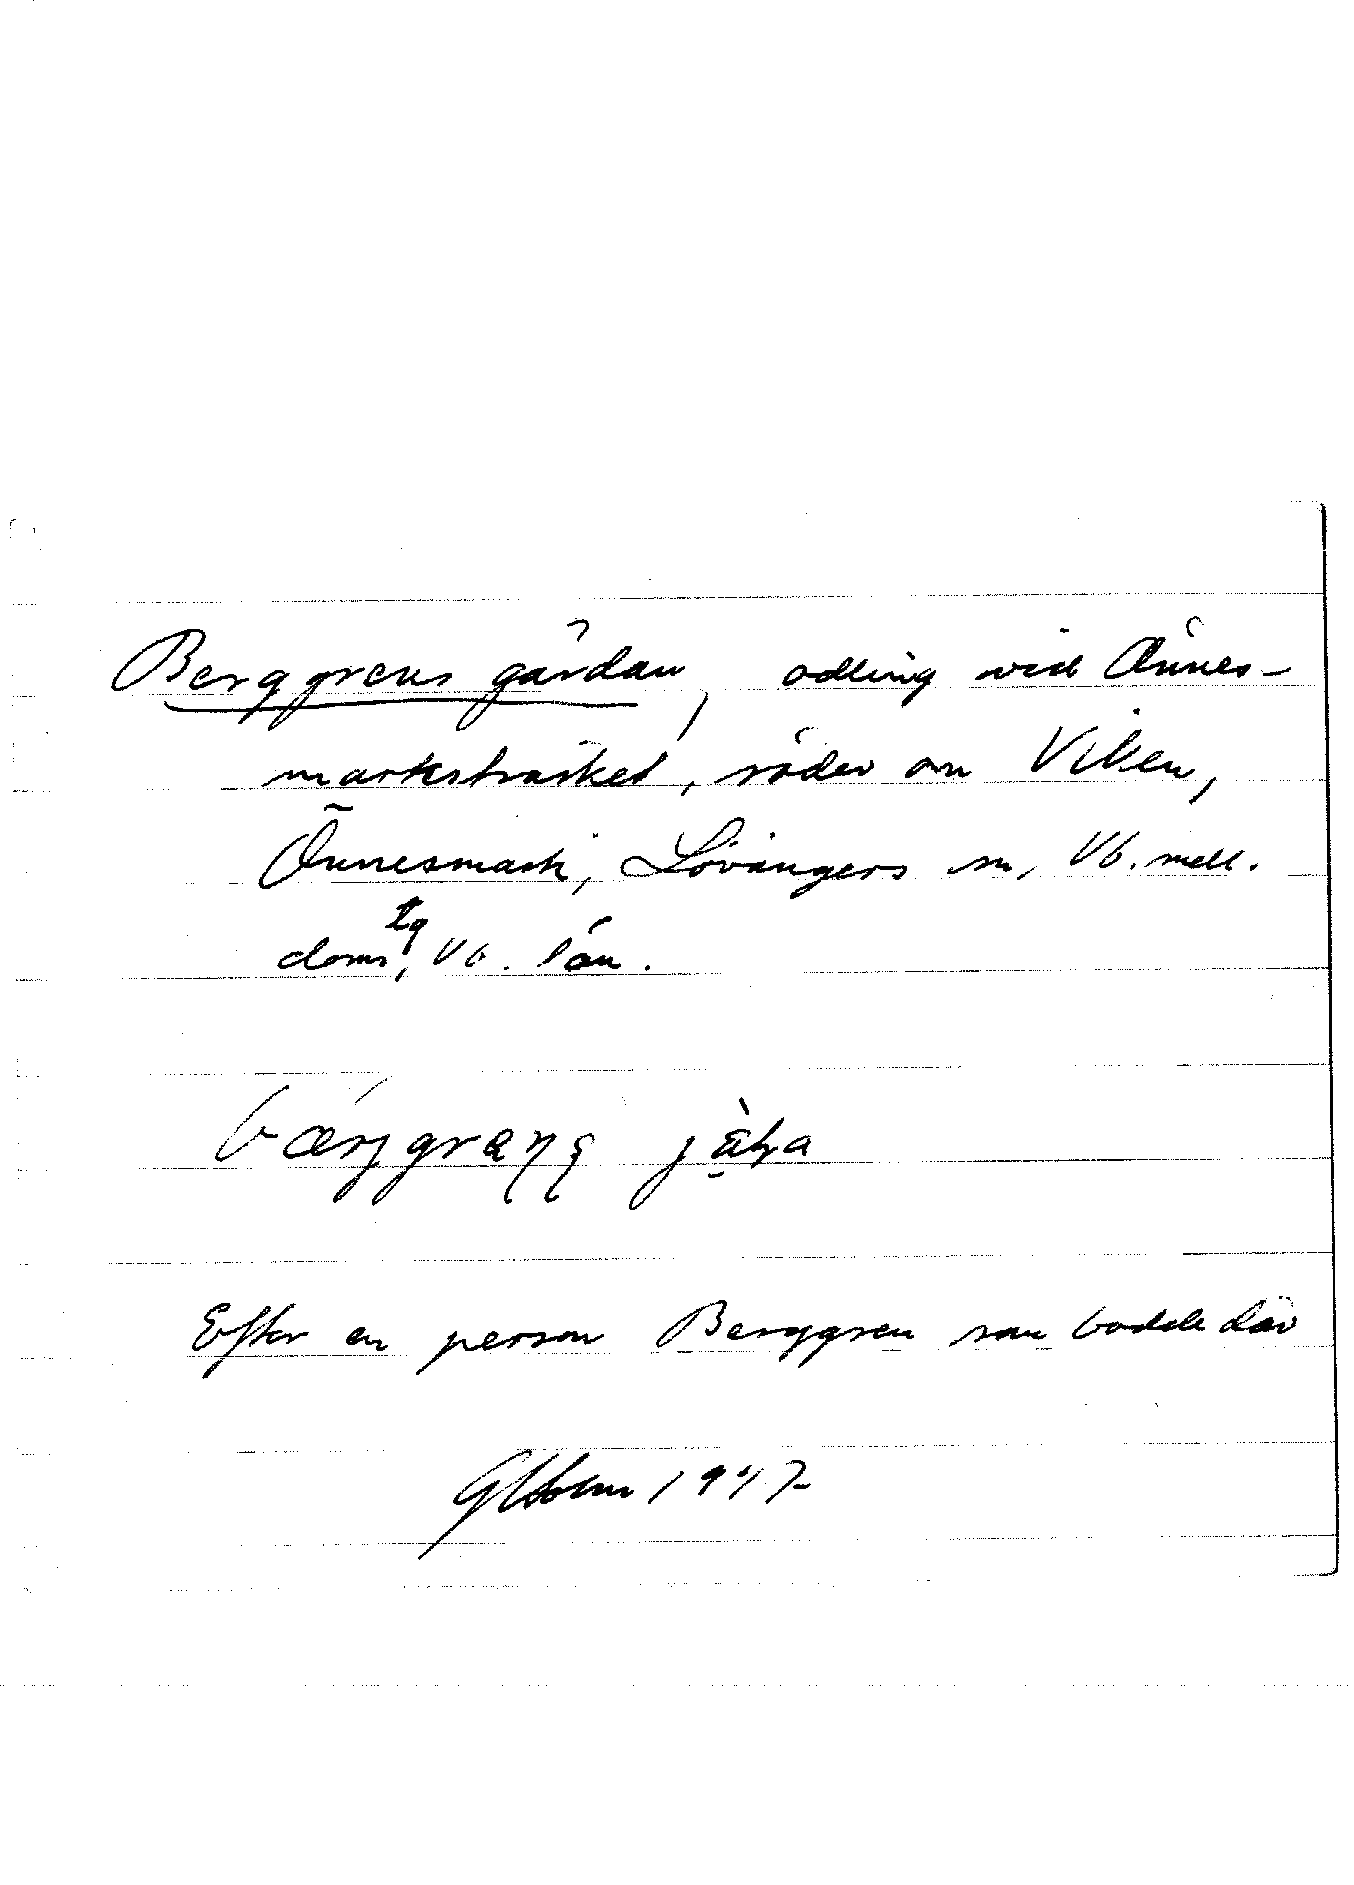 Berggrens gårdan, odling vid Önnes-
markträsket, söder om Viken,
Önnesmark, Lövångers sn, Vb. mell.
doms tg, Vb. län.
Efter en person Berggren som bodde där
GHolm 1947